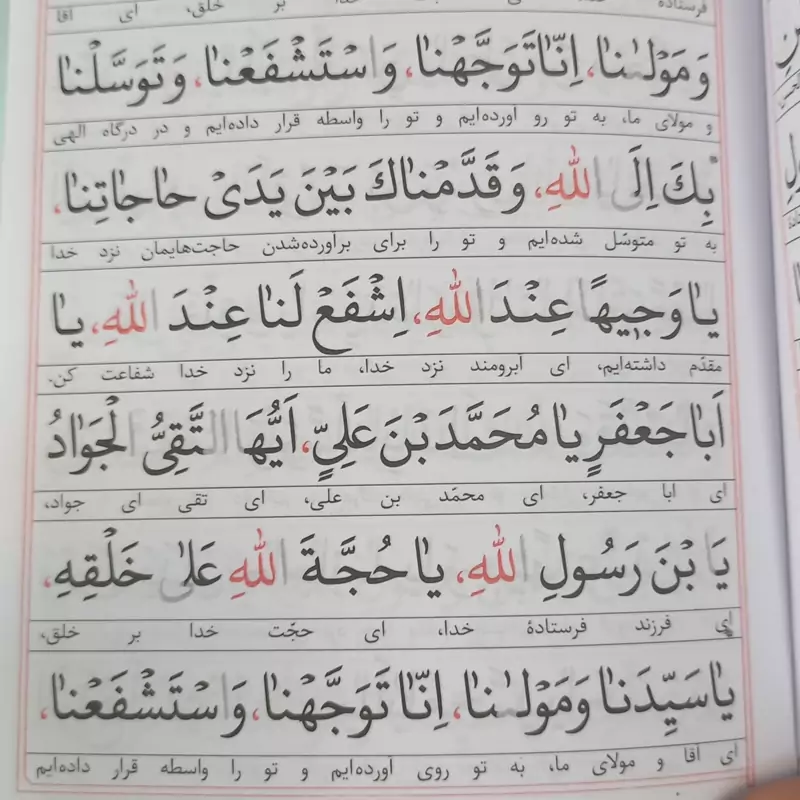 فرستاده خدا بر خلق، ای آقا
وَ مَوْلٰینٰا، اِنّٰا تَوَجَّهْنٰا، وَاسْتَشْفَعْنٰا، وَ تَوَسَّلْنٰا
و مولای ما، به تو رو آورده‌ایم و تو را واسطه قرار داده‌ایم و در درگاه الهی
بِكَ اِلَی اللهِ، وَ قَدَّمْنٰاكَ بَیْنَ یَدَیْ حٰاجٰاتِنٰا،
به تو متوسّل شده‌ایم و تو را برای برآورده‌شدن حاجت‌هایمان نزد خدا
یٰا وَجیهاً عِنْدَ اللهِ، اِشْفَعْ لَنٰا عِنْدَ اللهِ، یٰا
مقدّم داشته‌ایم، ای آبرومند نزد خدا، ما را نزد خدا شفاعت کن.
اَبٰا جَعْفَرٍ یٰا مُحَمَّدَ بْنَ عَلِیٍّ، اَیُّهَا التَّقِیُّ الْجَوٰادُ
ای ابا جعفر، ای محمّد بن علی، ای تقی ای جواد،
یَا بْنَ رَسُولِ اللهِ، یٰا حُجَّةَ اللهِ عَلیٰ خَلْقِهِ،
ای فرزند فرستادهٔ خدا، ای حجّت خدا بر خلق،
یٰا سَیِّدَنٰا وَ مَوْلٰینٰا، اِنّٰا تَوَجَّهْنٰا، وَاسْتَشْفَعْنٰا،
ای آقا و مولای ما، به تو روی آورده‌ایم و تو را واسطه قرار داده‌ایم